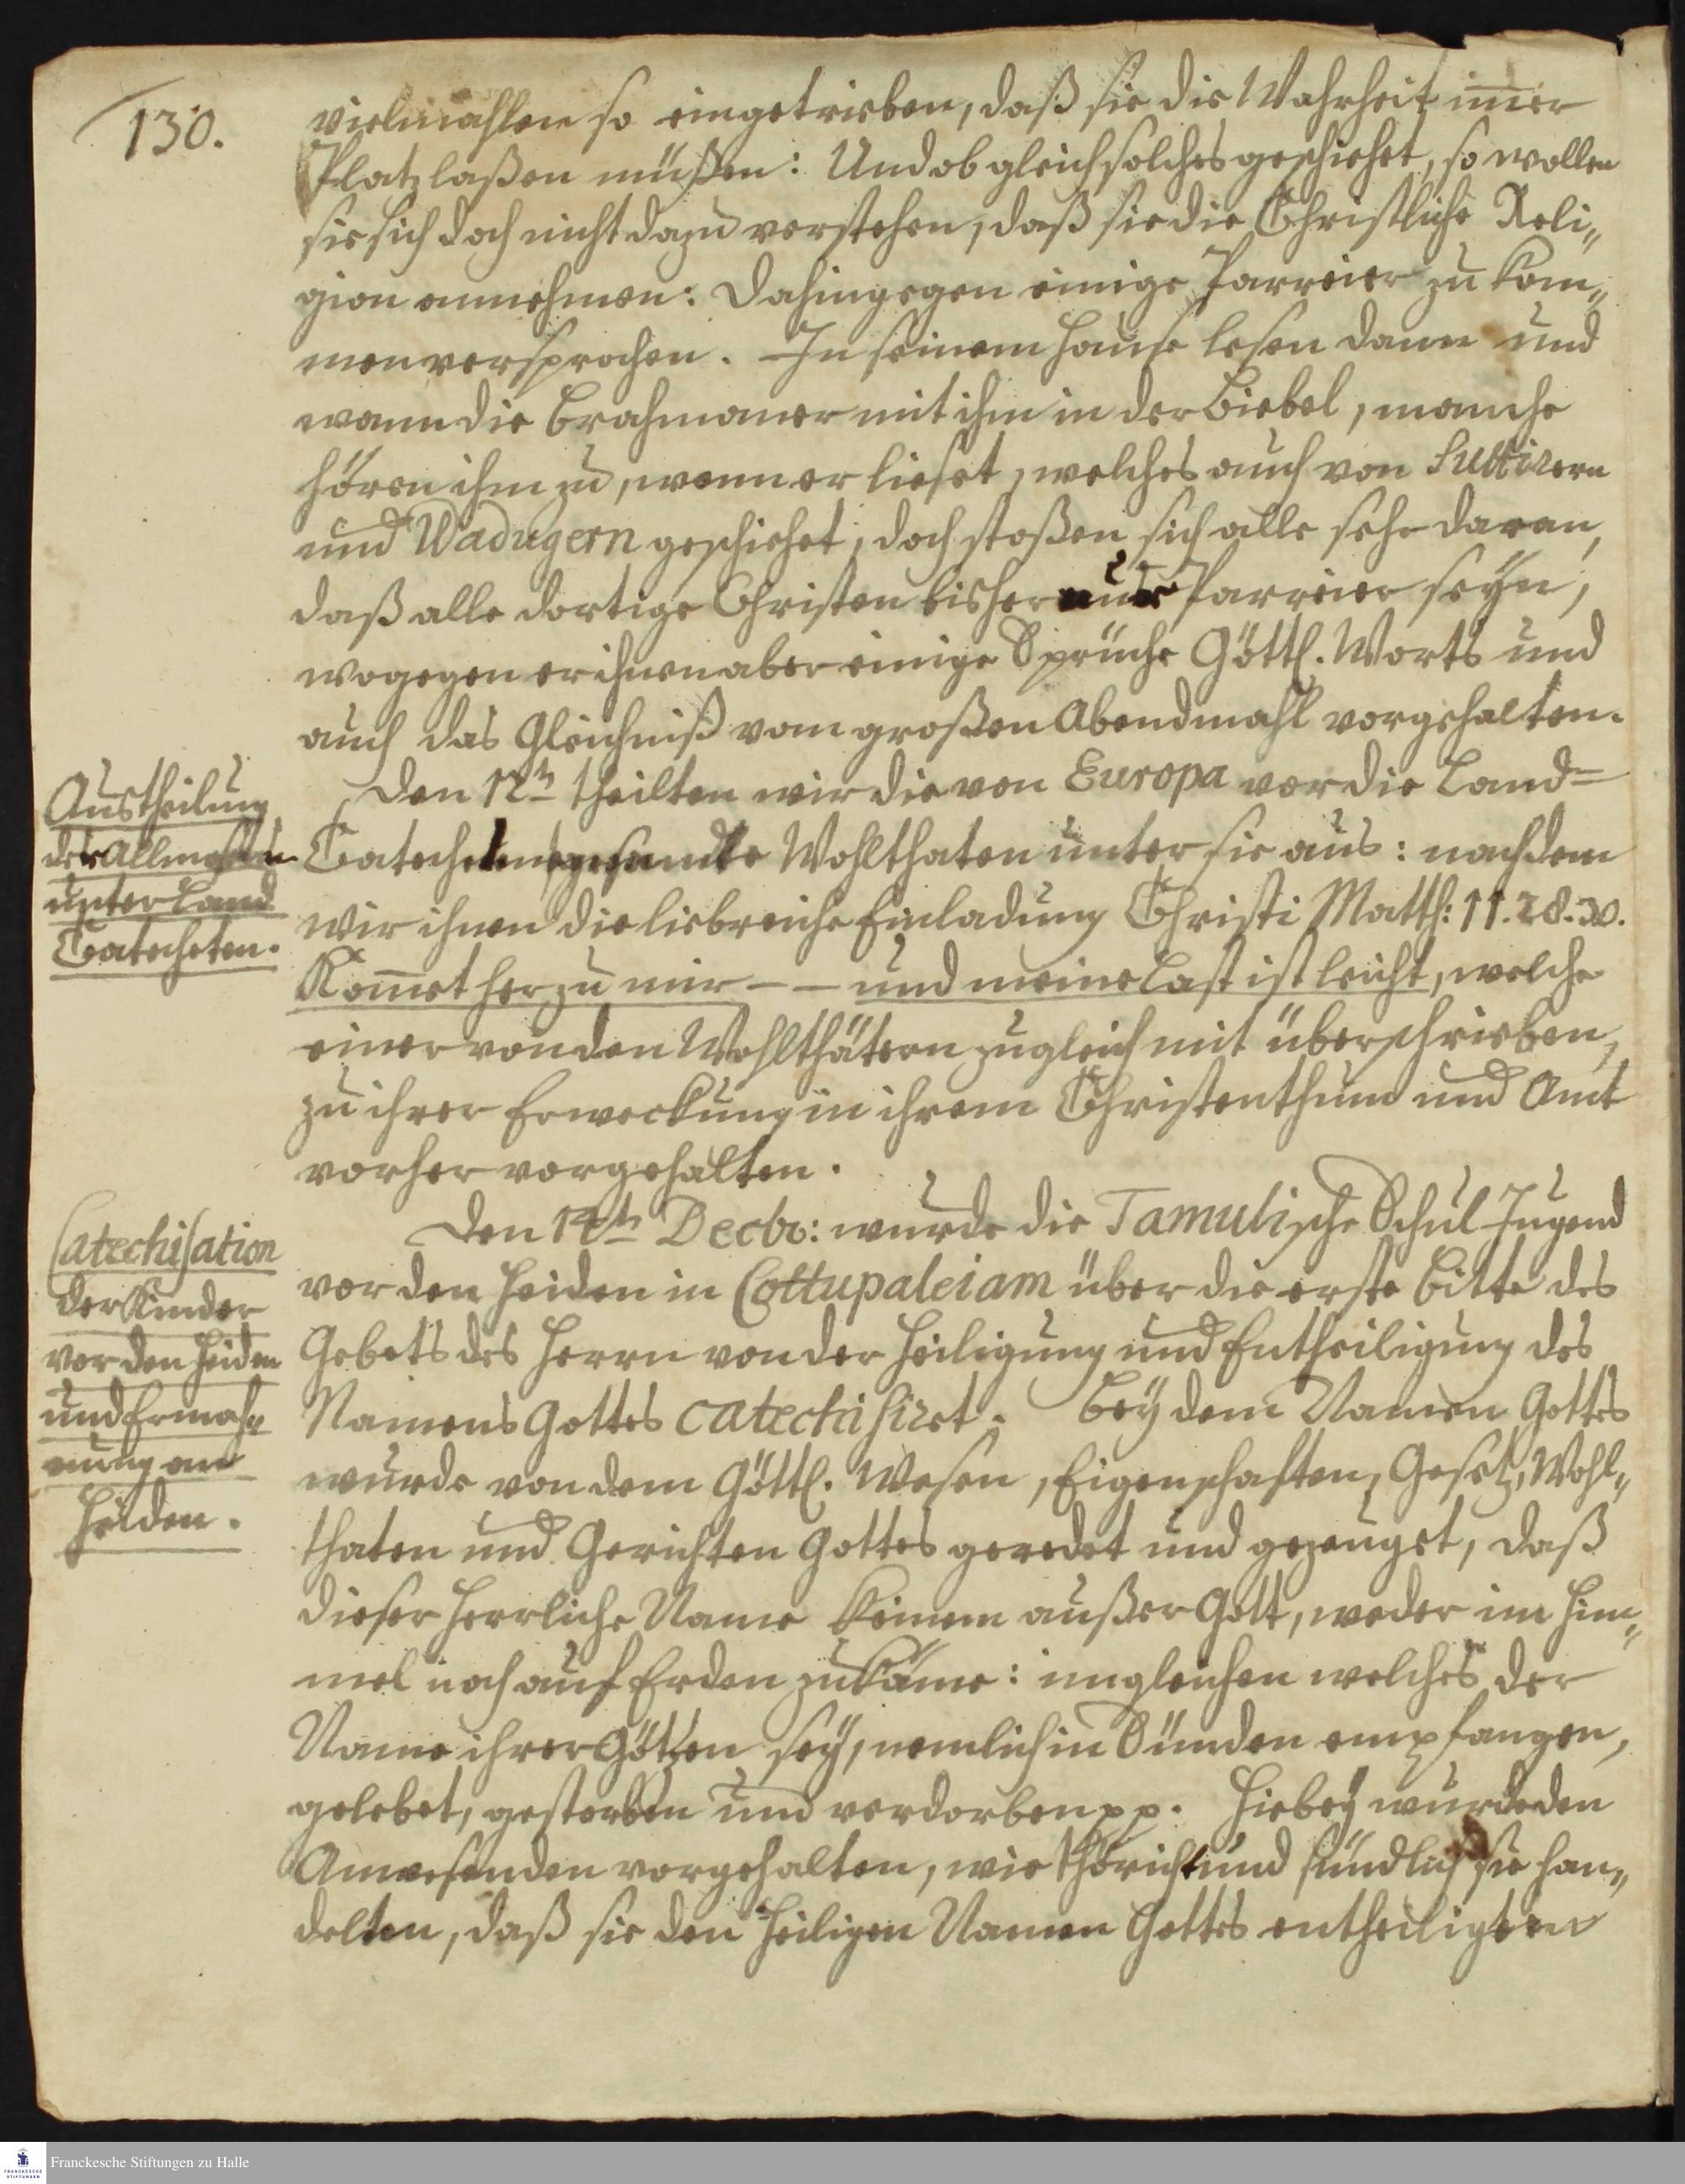 130.
vielmahlen so eingetrieben, daß sie die Wahrheit im̄er
Platz laßen müßen: Und ob gleich solches geschiehet, so wollen
sie sich doch nicht dazu verstehen, daß sie die Christliche Reli„
gion annehmen: Dahingegen einige Parreier zu kom„
men versprochen. In seinem Hause lesen dann und
wann die Brahmaner mit ihm in der Biebel, manche
hören ihm zu, wenn er lieset, welches auch von Suttirern
und Wadugern geschiehet, doch stoßen sich alle sehr daran,
daß alle dortige Christen bisher nur Parreier seyn,
wogegen er ihnen aber einige Sprüche Göttl. Worts und
auch das Gleichniß vom großen Abendmahl vorgehalten.
Austheilung
der Allmosen
unter Land
Catecheten.
Den 12ten theilten wir die von Europa vor die Land=
Catecheten gesandte Wohlthaten unter sie aus: nachdem
wir ihnen die liebreiche Einladung Christi Matth: 11. 28. 30.
Kom̄et her zu mir – – und meine Last ist leicht, welche
einer von den Wohlthätern zugleich mit überschrieben,
zu ihrer Erweckung in ihrem Christenthum und Amt
vorher vorgehalten.
Catechisation
der Kinder
vor den Heiden
und Ermah„
nung an
Heiden.
Den 14th Decbr: wurde die Tamulische Schul-Jugend
vor den Heiden in Cottupaleiam über die erste Bitte des
Gebets des Herrn von der Heiligung und Entheiligung des
Namens Gottes catechisiret. Bey dem Namen Gottes
wurde von dem Göttl. Wesen, Eigenschaften, Gesetz, Wohl„
thaten und Gerichten Gottes geredet und gezeuget, daß
dieser Herrliche Name keinem außer Gott, weder im Him„
mel noch auf Erden zukäme: imgleichen welches der
Name ihrer Götzen sey, nemlich in Sünden empfangen,
gelebet, gestorben und verdorben pp. Hiebey wurde den
Anwesenden vorgehalten, wie thöricht und sündlich sie han„
delten, daß sie den Heiligen Namen Gottes entheiligten
Franckesche Stiftungen zu Halle